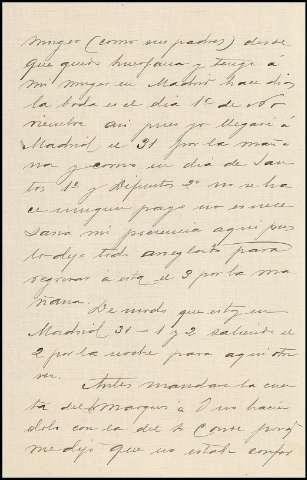 muger (como sus padres) desde
que quedó huerfana y tengo á
mi muger en Madrid hace dias
la boda es el dia 1º de No
viembre asi pues yo llegaré á
Madrid el 31 por la maña
na y como en dia de San
tos 1º y Difuntos 2º no se ha
ce ningun pago no es nece
saria mi presencia aqui pues
lo dejo todo arreglado para
regresar á esta el 3 por la ma
ñana.
De modo que estoy en
Madrid 31 - 1 y 2 saliendo el
2 por la noche para aqui otra
vez.
Antes mandaba la cuen
ta del Marques á V no hacien
dolo con la del Conde porq
me dijo que no estaba confor